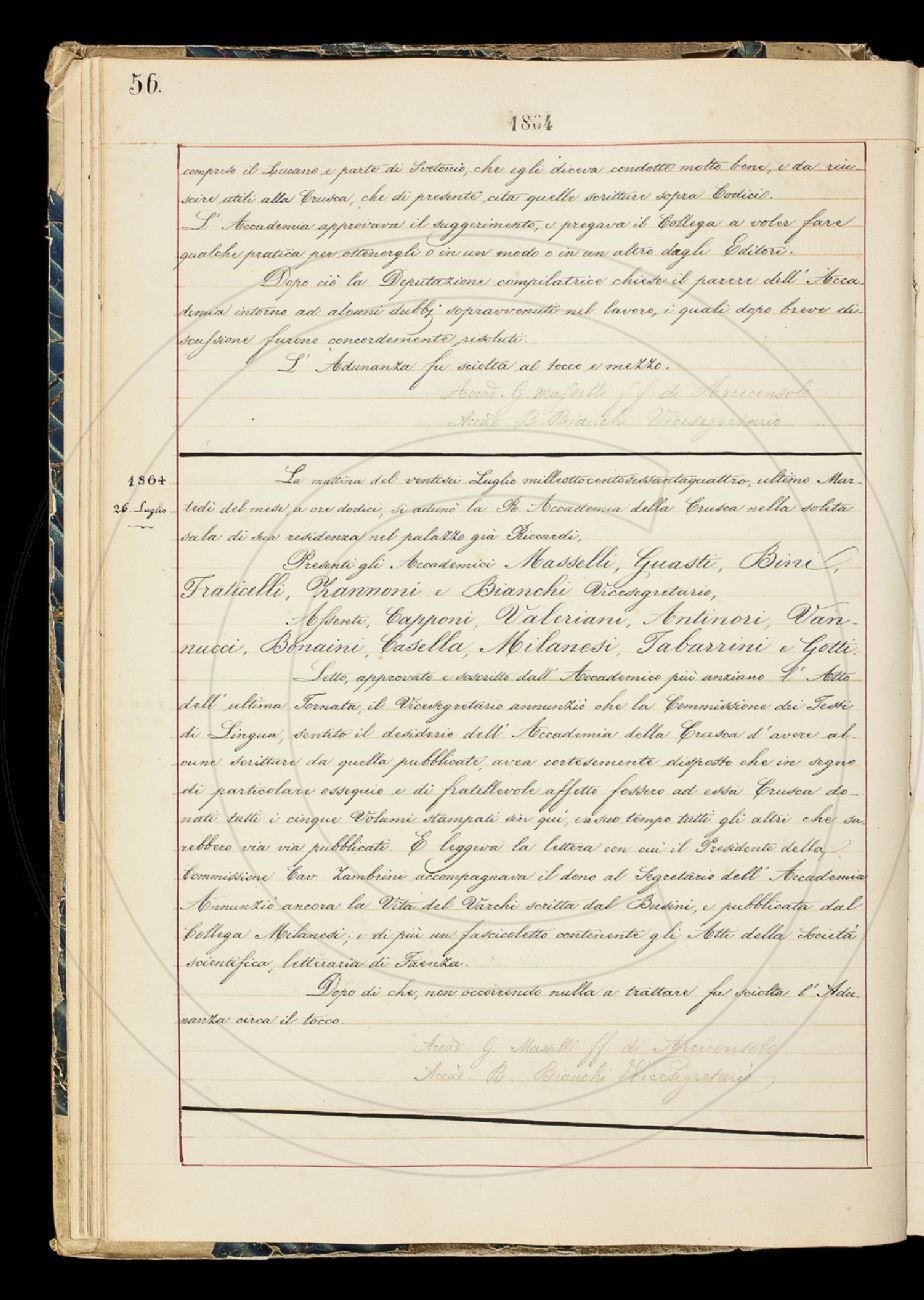 56.
1864
compreso il Lucano, e parte di Svetonio, che egli diceva condotte molto bene, e da riu-
scire utili alla Crusca, che di presente cita quelle scritture sopra Codici.
L' Accademia approvava il suggerimento, e pregava il Collega a voler fare
qualche pratica per ottenergli o in un modo o in un altro dagli Editori.
Dopo ciò la Deputazione compilatrice chiese il parere dell' Acca-
demia intorno ad alcuni dubbj sopravvenuti nel lavoro, i quali dopo breve di-
scussione furono concordemente risoluti.
L' Adunanza fu sciolta al tocco e mezzo.
Accad. G. Masselli ff di Arciconsolo
Accad B Bianchi Vicesegretario
1864
26. Luglio
La mattina del ventisei Luglio milleottocentosessantaquattro, ultimo Mar-
tedì del mese, a ore dodici, si adunò la R. Accademia della Crusca nella solita
sala di sua residenza nel palazzo già Riccardi,
Presenti gli Accademici Masselli, Guasti, Bini,
Fraticelli, Zannoni e Bianchi Vicesegretario,
Assenti, Capponi, Valeriani, Antinori, Van-
nucci, Bonaini, Casella, Milanesi, Tabarrini e Gotti.
Letto, approvato e soscritto dall' Accademico più anziano l' Atto
dell' ultima Tornata, il Vicesegretario annunziò che la Commissione dei Testi
di Lingua, sentito il desiderio dell' Accademia della Crusca d' avere al-
cune scritture da quella pubblicate, avea cortesemente disposto che in segno
di particolare ossequio e di fratellevole affetto fossero ad essa Crusca do-
nati tutti i cinque Volumi stampati sin qui, e a suo tempo tutti gli altri che sa-
rebbero via via pubblicati. E leggeva la lettera con cui il Presidente della
Commissione Cav. Zambrini accompagnava il dono al Segretario dell' Accademia
Annunziò ancora la Vita del Varchi scritta dal Busini, e pubblicata dal
Collega Milanesi; e di più un fascicoletto contenente gli Atti della Società
scientifica, letteraria di Faenza.
Dopo di che, non occorrendo nulla a trattare fu sciolta l' Adu-
nanza circa il tocco.
Accad G. Maselli ff di Arciconsolo
Accad B. Bianchi Vicesegretario